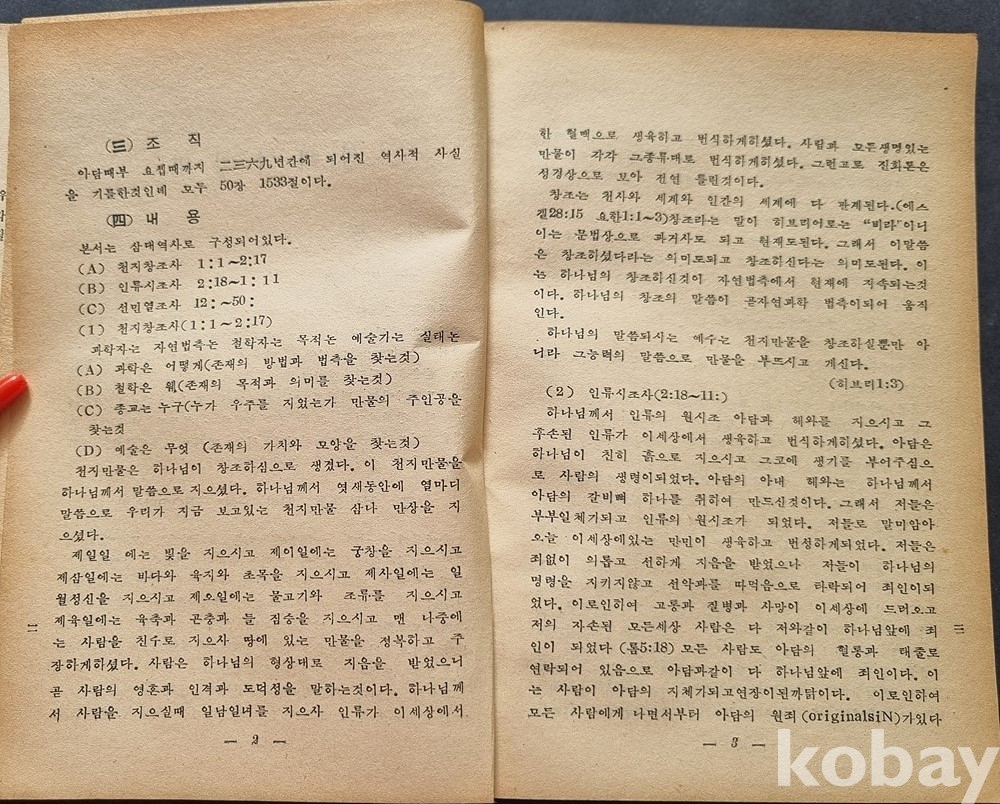 ㈢ 조 직
아담때부 요셉때까지 二三六九년간에 되어진 역사적 사실
을 기록한것인데 모두 50장 1533절이다.
㈣ 내 용
본서는 삼대역사로 구성되어있다.
(A) 천지창조사 1:1~2:17
(B) 인류시조사 2:18~1:11
(C) 선민열조사 12:~50:
(1) 천지창조사(1:1~2:17)
과학자는 자연법측논 철학자는 목적논 예술기는 실태논
(A) 과학은 어떻게(존재의 방법과 법측을 찾는것)
(B) 철학은 웨(존재의 목적과 의미를 찾는것)
(C) 종교는 누구(누가 우주를 지었는가 만물의 주인공을
찾는것
(D) 예술은 무엇 (존재의 가치와 모양을 찾는것)
천지만물은 하나님이 창조하심으로 생겼다. 이 천지만물을
하나님께서 말씀으로 지으셨다. 하나님께서 엿새동안에 열마디
말씀으로 우리가 지금 보고있는 천지만물 삼나 만상을 지
으셨다.
제일일 에는 빛을 지으시고 제이일에는 궁창을 지으시고
제삼일에는 바다와 육지와 초목을 지으시고 제사일에는 일
월성신을 지으시고 제오일에는 물고기와 조류를 지으시고
제육일에는 육축과 곤충과 들 짐승을 지으시고 맨 나중에
는 사람을 친수로 지으사 땅에 있는 만물을 정복하고 주
장하게하셨다. 사람은 하나님의 형상대로 지음을 받었으니
곧 사람의 영혼과 인격과 도덕성을 말하는것이다. 하나님께
서 사람을 지으실때 일남일녀를 지으사 인류가 이세상에서
二
— 2 —
한 혈맥으로 생육하고 번식하게하셨다. 사람과 모든생명있는
만물이 각각 그종류대로 번식하게하셨다. 그런고로 진화론은
성경상으로 보아 전연 틀린것이다.
창조는 천사와 세계와 인간의 세계에 다 관계된다.(에스
겔28:15 요한1:1~3)창조라는 말이 히브리어로는 “비라”이니
이는 문법상으로 과거사도 되고 현재도된다. 그래서 이말씀
은 창조하셨다라는 의미도되고 창조하신다는 의미도된다. 이
는 하나님의 창조하신것이 자연법측에서 현재에 지속되는것
이다. 하나님의 창조의 말씀이 곧자연과학 법측이되어 움직
인다.
하나님의 말씀되시는 예수는 천지만물을 창조하실뿐만 아
니라 그능력의 말씀으로 만물을 부뜨시고 게신다.
(히브리1:3)
(2) 인류시조사(2:18~11:)
하나님께서 인류의 원시조 아담과 헤와를 지으시고 그
후손된 인류가 이세상에서 생육하고 번식하게하셨다. 아담은
하나님이 친히 흙으로 지으시고 그코에 생기를 부어주심으
로 사람의 생명이되었다. 아담의 아내 헤와는 하나님께서
아담의 갈비뼈 하나를 취하여 만드신것이다. 그래서 저들은
부부일체가되고 인류의 원시조가 되었다. 저들로 말미암아
오늘 이세상에있는 만민이 생육하고 번성하게되었다. 저들은
죄없이 의롭고 선하게 지음을 받었으나 저들이 하나님의
명령을 지키지않고 선악과를 따먹음으로 타락되어 죄인이되
었다. 이로인하여 고통과 질병과 사망이 이세상에 드러오고
저의 자손된 모든세상 사람은 다 저와같이 하나님앞에 죄
인이 되었다 (롬5:18) 모든 사람도 아담의 혈통과 태줄로
연락되어 있음으로 아담과같이 다 하나님앞에 죄인이다. 이
는 사람이 아담의 지체가되고연장이된까닭이다. 이로인하여
모든 사람에게 나면서부터 아담의 원죄(originalsiN)가있다
三
— 3 —
kobay